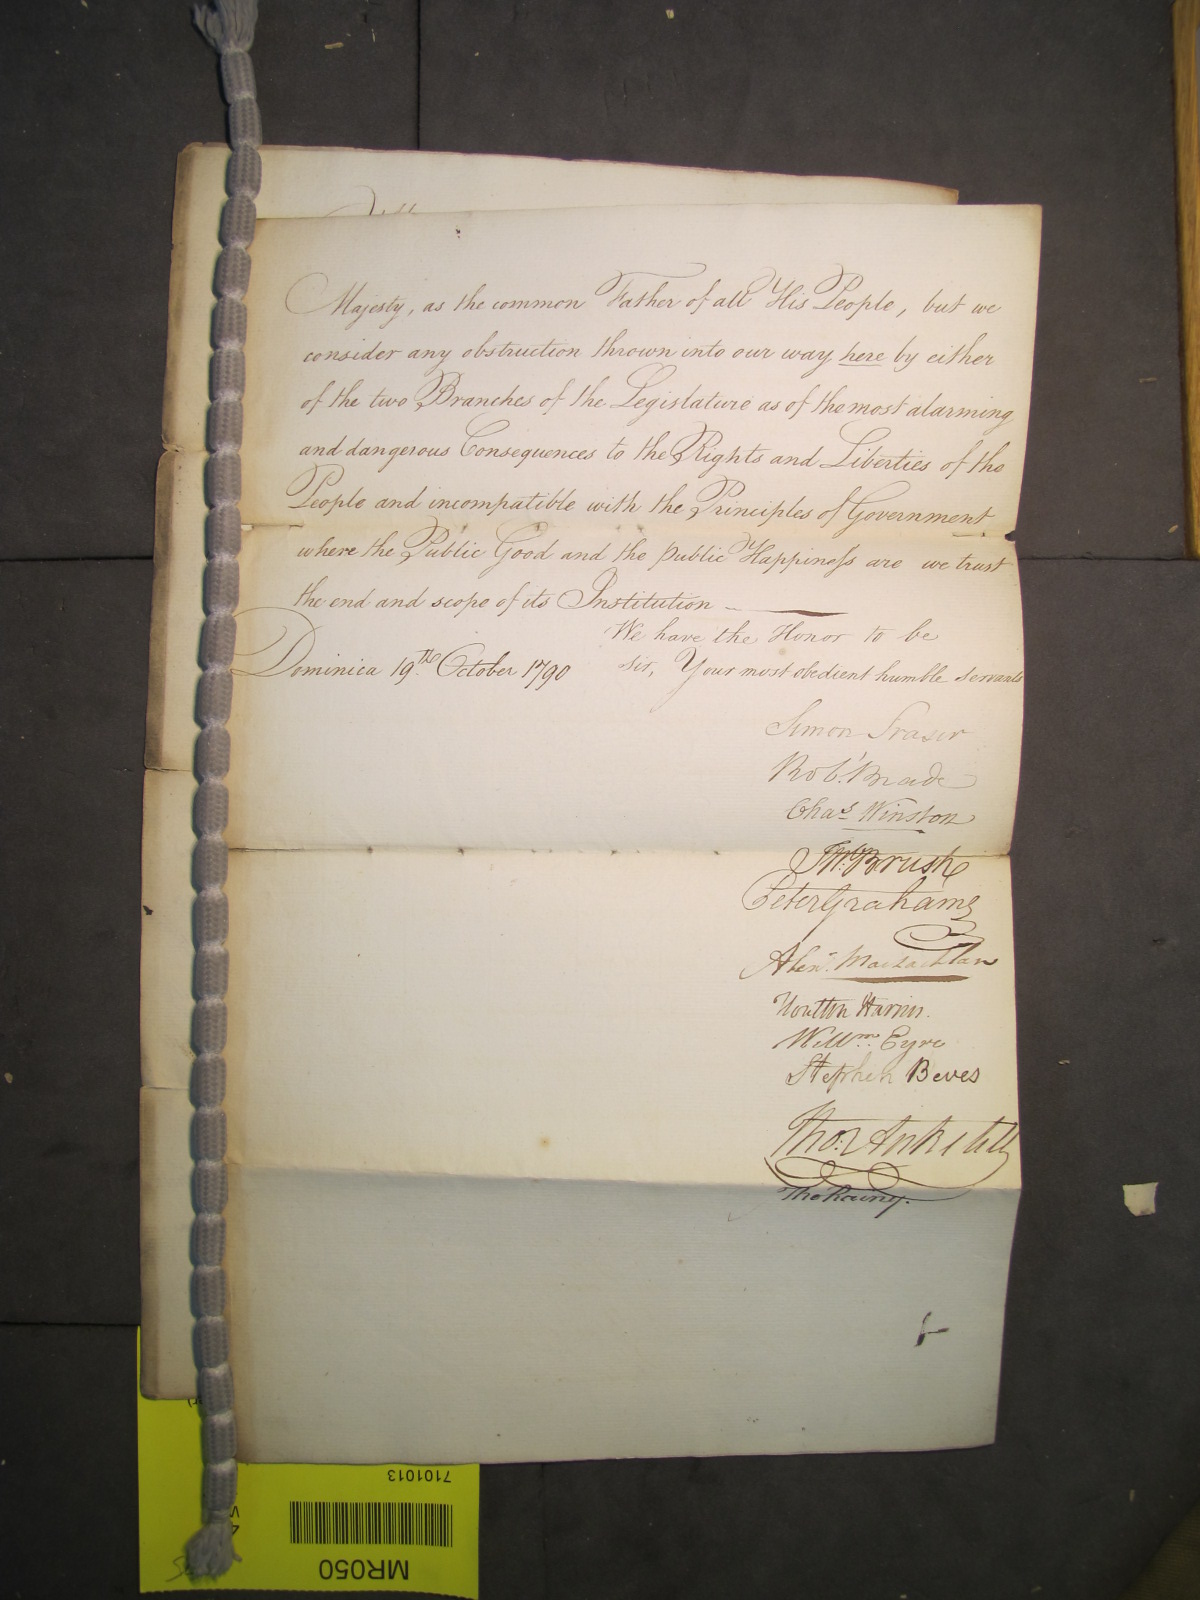 Majesty, as the common Father of all His People, but we
consider any obstruction thrown into our way here by either
of the two Branches of the Legislature as of the most alarming
and dangerous Consequences to the Rights and Liberties of the
People and incompatible with the Principles of Government
where the Public Good and the public Happiness are we trust
the end and scope of its Institution
We have the Honor to be
Dominica 19th October 1790
Sir, Your most obedient humble Servants
Simon Fraser
Robt. Brade
Chas Winston
Brush
Peter Graham
Alexr. Maclachlan
Harris.
Willm. Eyre
Stephen Beves
Thos. Anketell
Tho Rainy.
7101013
MR050